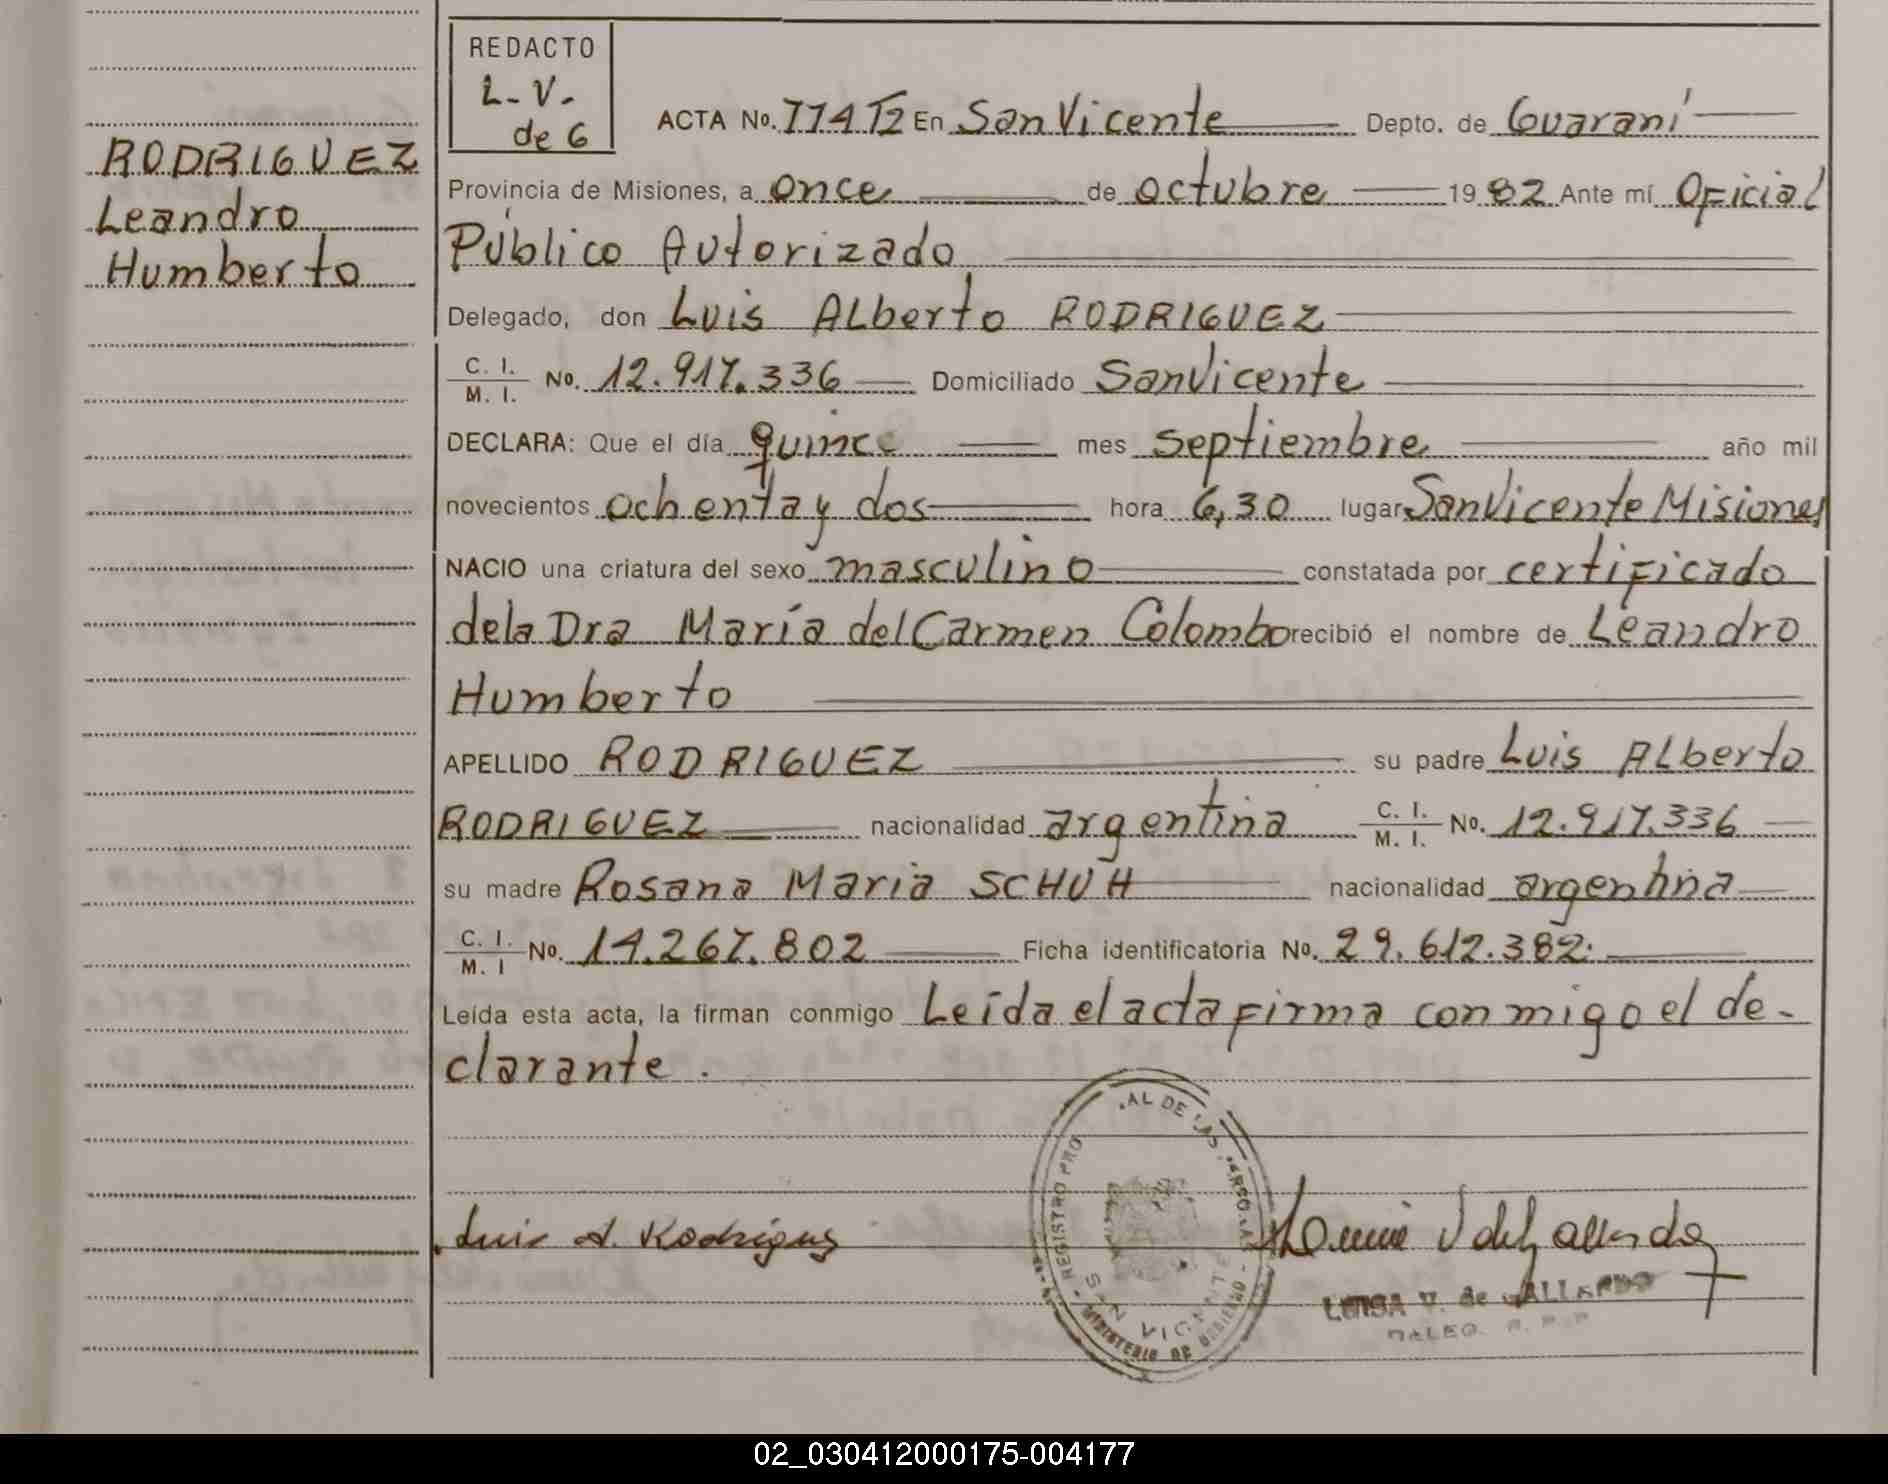 REDACTO
L-V-
de G
ACTA No. 774 T2 En San Vicente Depto. de Guaraní
RODRIGUEZ
Leandro
Humberto
Provincia de Misiones, a once de octubre 1982 Ante mí Oficial
Público Autorizado
Delegado, don Luis ALberto RODRIGUEZ
C. I. M. I. No. 12.917.336 Domiciliado San Vicente
DECLARA: Que el día quince mes septiembre año mil
novecientos ochenta y dos hora 6,30 lugar San Vicente Misiones
NACIO una criatura del sexo masculino constatada por certificado
de la Dra María del Carmen Colombo recibió el nombre de Leandro
Humberto
APELLIDO RODRIGUEZ su padre Luis ALberto
RODRIGUEZ nacionalidad argentina C. I. M. I. No. 12.917.336
su madre Rosana Maria SCHUH nacionalidad argentina
C. I. M. I No. 14.267.802 Ficha identificatoria No. 29.612.382.
Leída esta acta, la firman conmigo Leída el acta firma conmigo el de-
clarante.
REGISTRO PRO AL DE LAS PERSONAS
SAN VICENTE
MINISTERIO DE GOBIERNO
Luis A. Rodriguez
LUISA V. de GALLARDO
02_030412000175-004177